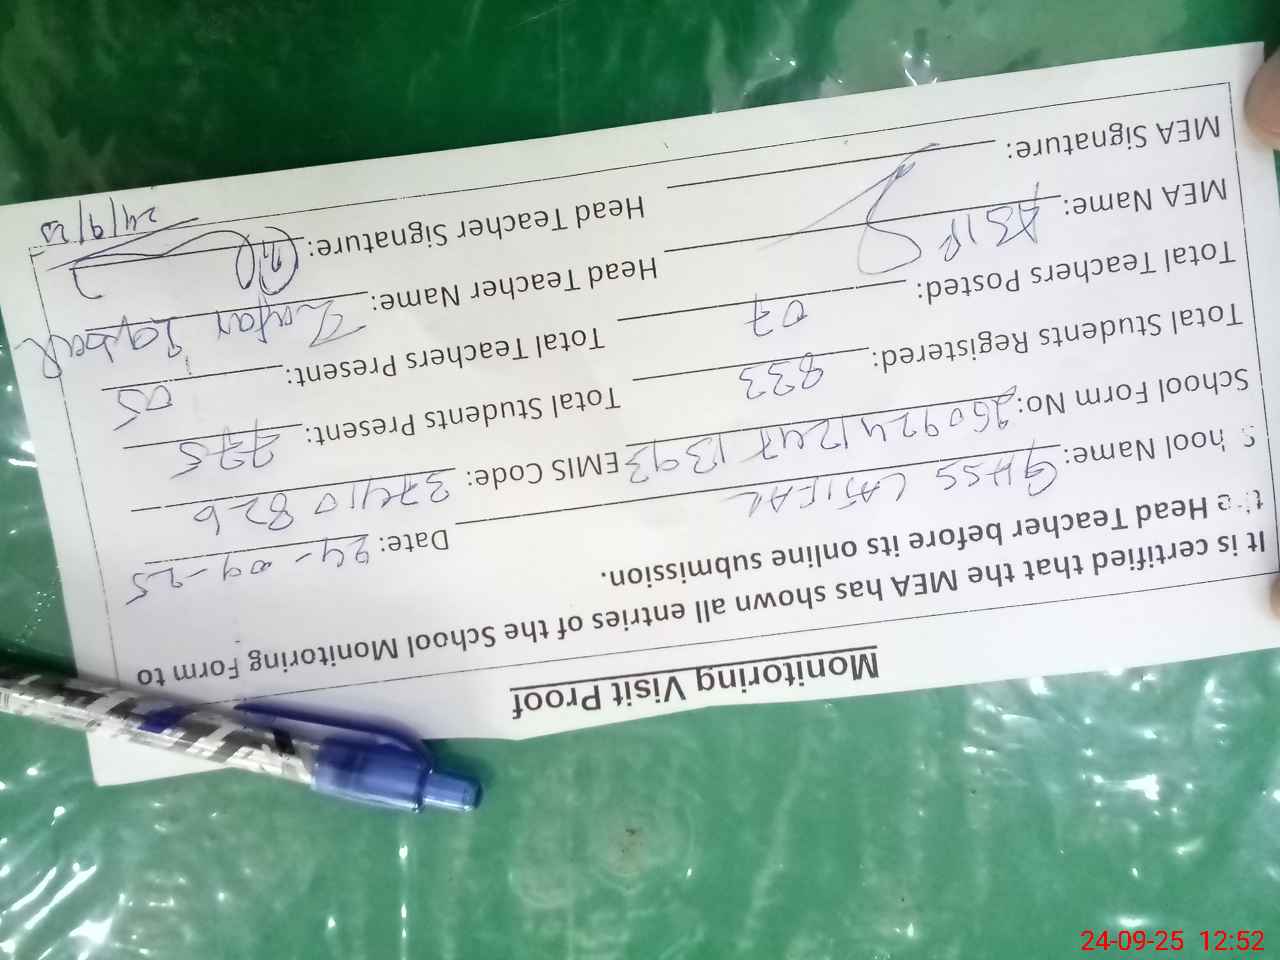 Monitoring Visit Proof
It is certified that the MEA has shown all entries of the School Monitoring Form to
the Head Teacher before its online submission.
School Name: GHSS LATIFAL Date: 24-09-25
School Form No: EMIS Code: 37410826
Total Students Registered: 833 Total Students Present: 775
Total Teachers Posted: 07 Total Teachers Present: 05
MEA Name: ASIF Head Teacher Name: Zafar Iqbal
MEA Signature: Head Teacher Signature:
24/9/25
24-09-25 12:52